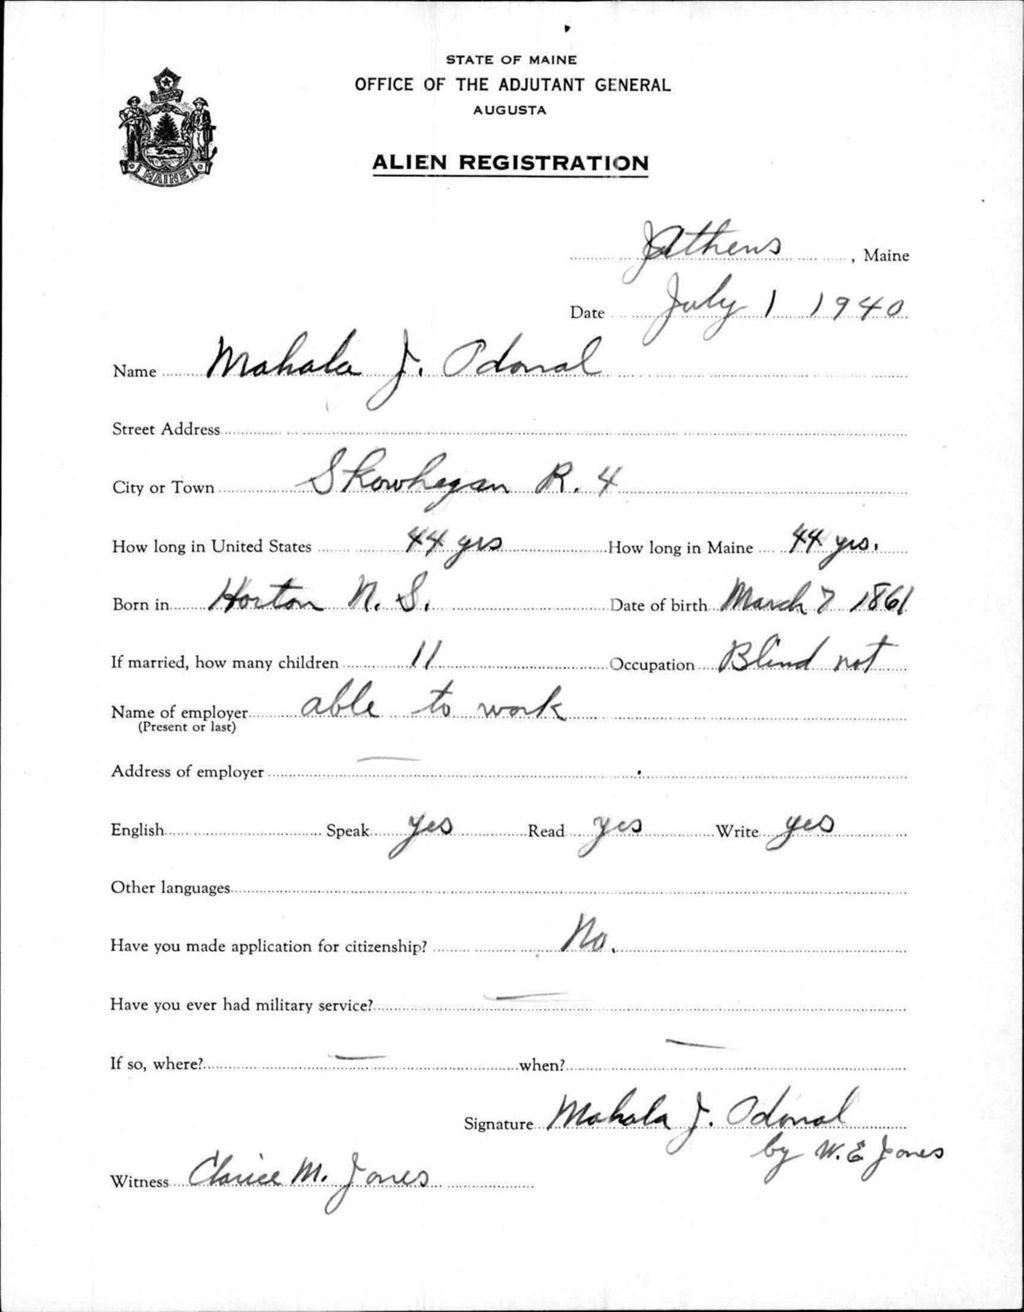 STATE OF MAINE
OFFICE OF THE ADJUTANT GENERAL
AUGUSTA
ALIEN REGISTRATION
MAINE
Athens, Maine
Date July 1 1940
Name Mahala J. Odonal
Street Address
City or Town Skowhegan R. 4
How long in United States 44 yrs How long in Maine 44 yrs.
Born in Horton N. S. Date of birth March 7 1861
If married, how many children 11 Occupation Blind not
Name of employer able to work
(Present or last)
Address of employer —
English Speak yes Read yes Write yes
Other languages
Have you made application for citizenship? No.
Have you ever had military service? —
If so, where? — when? —
Signature Mahala J. Odonal
by W. E Jones
Witness Clarice M. Jones